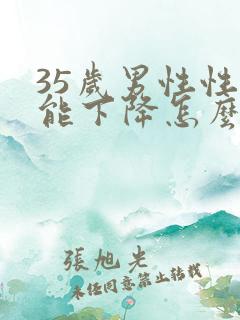 35歲男性性
能下降怎麼
張旭光
未经同意禁止转载